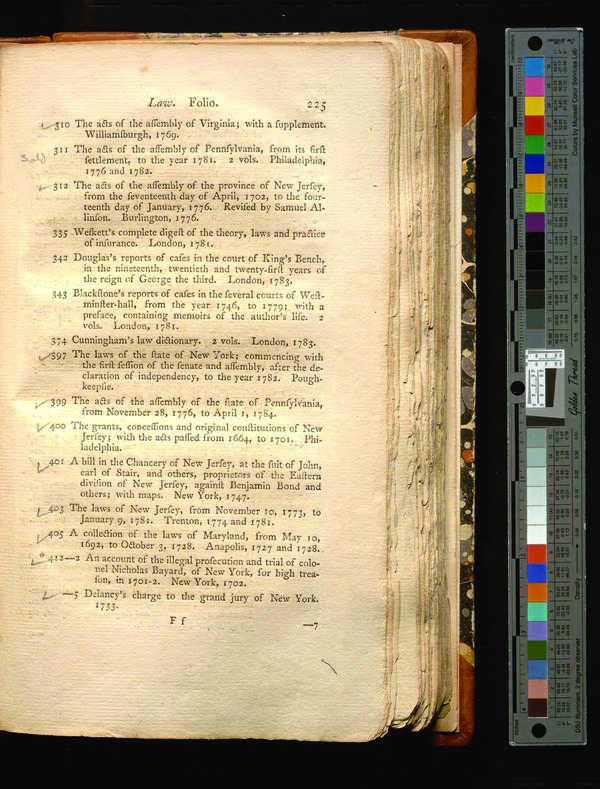 Law. Folio. 225
310 The acts of the aſſembly of Virginia; with a ſupplement.
Williamſburgh, 1769.
Sold
311 The acts of the aſſembly of Pennſylvania, from its firſt
ſettlement, to the year 1781. 2 vols. Philadelphia,
1776 and 1782.
312 The acts of the aſſembly of the province of New Jerſey,
from the ſeventeenth day of April, 1702, to the four-
teenth day of January, 1776. Reviſed by Samuel Al-
linſon. Burlington, 1776.
335 Weſkett's complete digeſt of the theory, laws and practice
of inſurance. London, 1781.
342 Douglas's reports of caſes in the court of King's Bench,
in the nineteenth, twentieth and twenty-firſt years of
the reign of George the third. London, 1783.
343 Blackſtone's reports of caſes in the ſeveral courts of Weſt-
minſter-hall, from the year 1746, to 1779; with a
preface, containing memoirs of the author's life. 2
vols. London, 1781.
374 Cunningham's law dictionary. 2 vols. London, 1783.
397 The laws of the ſtate of New York; commencing with
the firſt ſeſſion of the ſenate and aſſembly, after the de-
claration of independency, to the year 1782. Pough-
keepſie.
399 The acts of the aſſembly of the ſtate of Pennſylvania,
from November 28, 1776, to April 1, 1784.
400 The grants, conceſſions and original conſtitutions of New
Jerſey; with the acts paſſed from 1664, to 1701. Phi-
ladelphia.
401 A bill in the Chancery of New Jerſey, at the ſuit of John,
earl of Stair, and others, proprietors of the Eaſtern
diviſion of New Jerſey, againſt Benjamin Bond and
others; with maps. New York, 1747.
403 The laws of New Jerſey, from November 10, 1773, to
January 9, 1781. Trenton, 1774 and 1781.
405 A collection of the laws of Maryland, from May 10,
1692, to October 3, 1728. Anapolis, 1727 and 1728.
*412—2 An account of the illegal proſecution and trial of colo-
nel Nicholas Bayard, of New York, for high trea-
ſon, in 1701-2. New York, 1702.
—5 Delancy's charge to the grand jury of New York.
1733.
F f —7
Colors by Munsell Color Services Lab
Golden Thread
Density
D50 Illuminant, 2 degree observer
inches